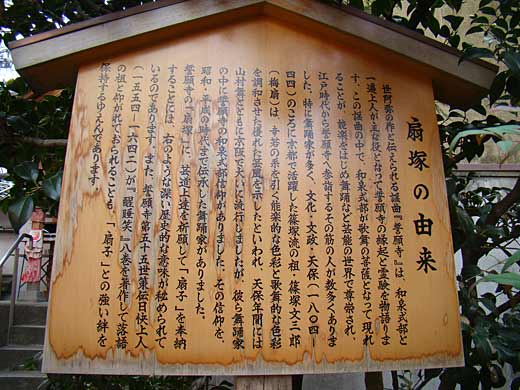 扇塚の由来
世阿弥の作と伝えられる謡曲『誓願寺』は、和泉式部と
一遍上人が主な役となって誓願寺の縁起と霊験を物語りま
す。この謡曲の中で、和泉式部が歌舞の菩薩となって現れ
ることが、能楽をはじめ舞踊など芸能の世界で尊崇され、
江戸時代から誓願寺へ参詣するその筋の人が数多くありま
した。特に舞踊家が多く、文化・文政・天保（一八〇四ー
四四）のころに京都で活躍した篠塚流の祖・篠塚文三郎
（梅扇）は、幸若の系を引く能楽的な色彩と歌舞伎的な色彩
を調和させた優れた芸風を示したといわれ、天保年間には
山村舞とともに京阪で大いに流行しましたが、彼ら舞踊家
の中に誓願寺の和泉式部信仰がありました。その信仰を、
昭和・平成の時代まで伝承した舞踊家がありました。
誓願寺の「扇塚」に、芸道上達を祈願して「扇子」を奉納
することには、右のような深い歴史的な意味が秘められて
いるのであります。また、誓願寺第五十五世策伝日快上人
（一五五四ー一六四二）が『醒睡笑』八巻を著作して落語
の祖と仰がれておられることも、「扇子」との強い絆を
保持するゆえんであります。